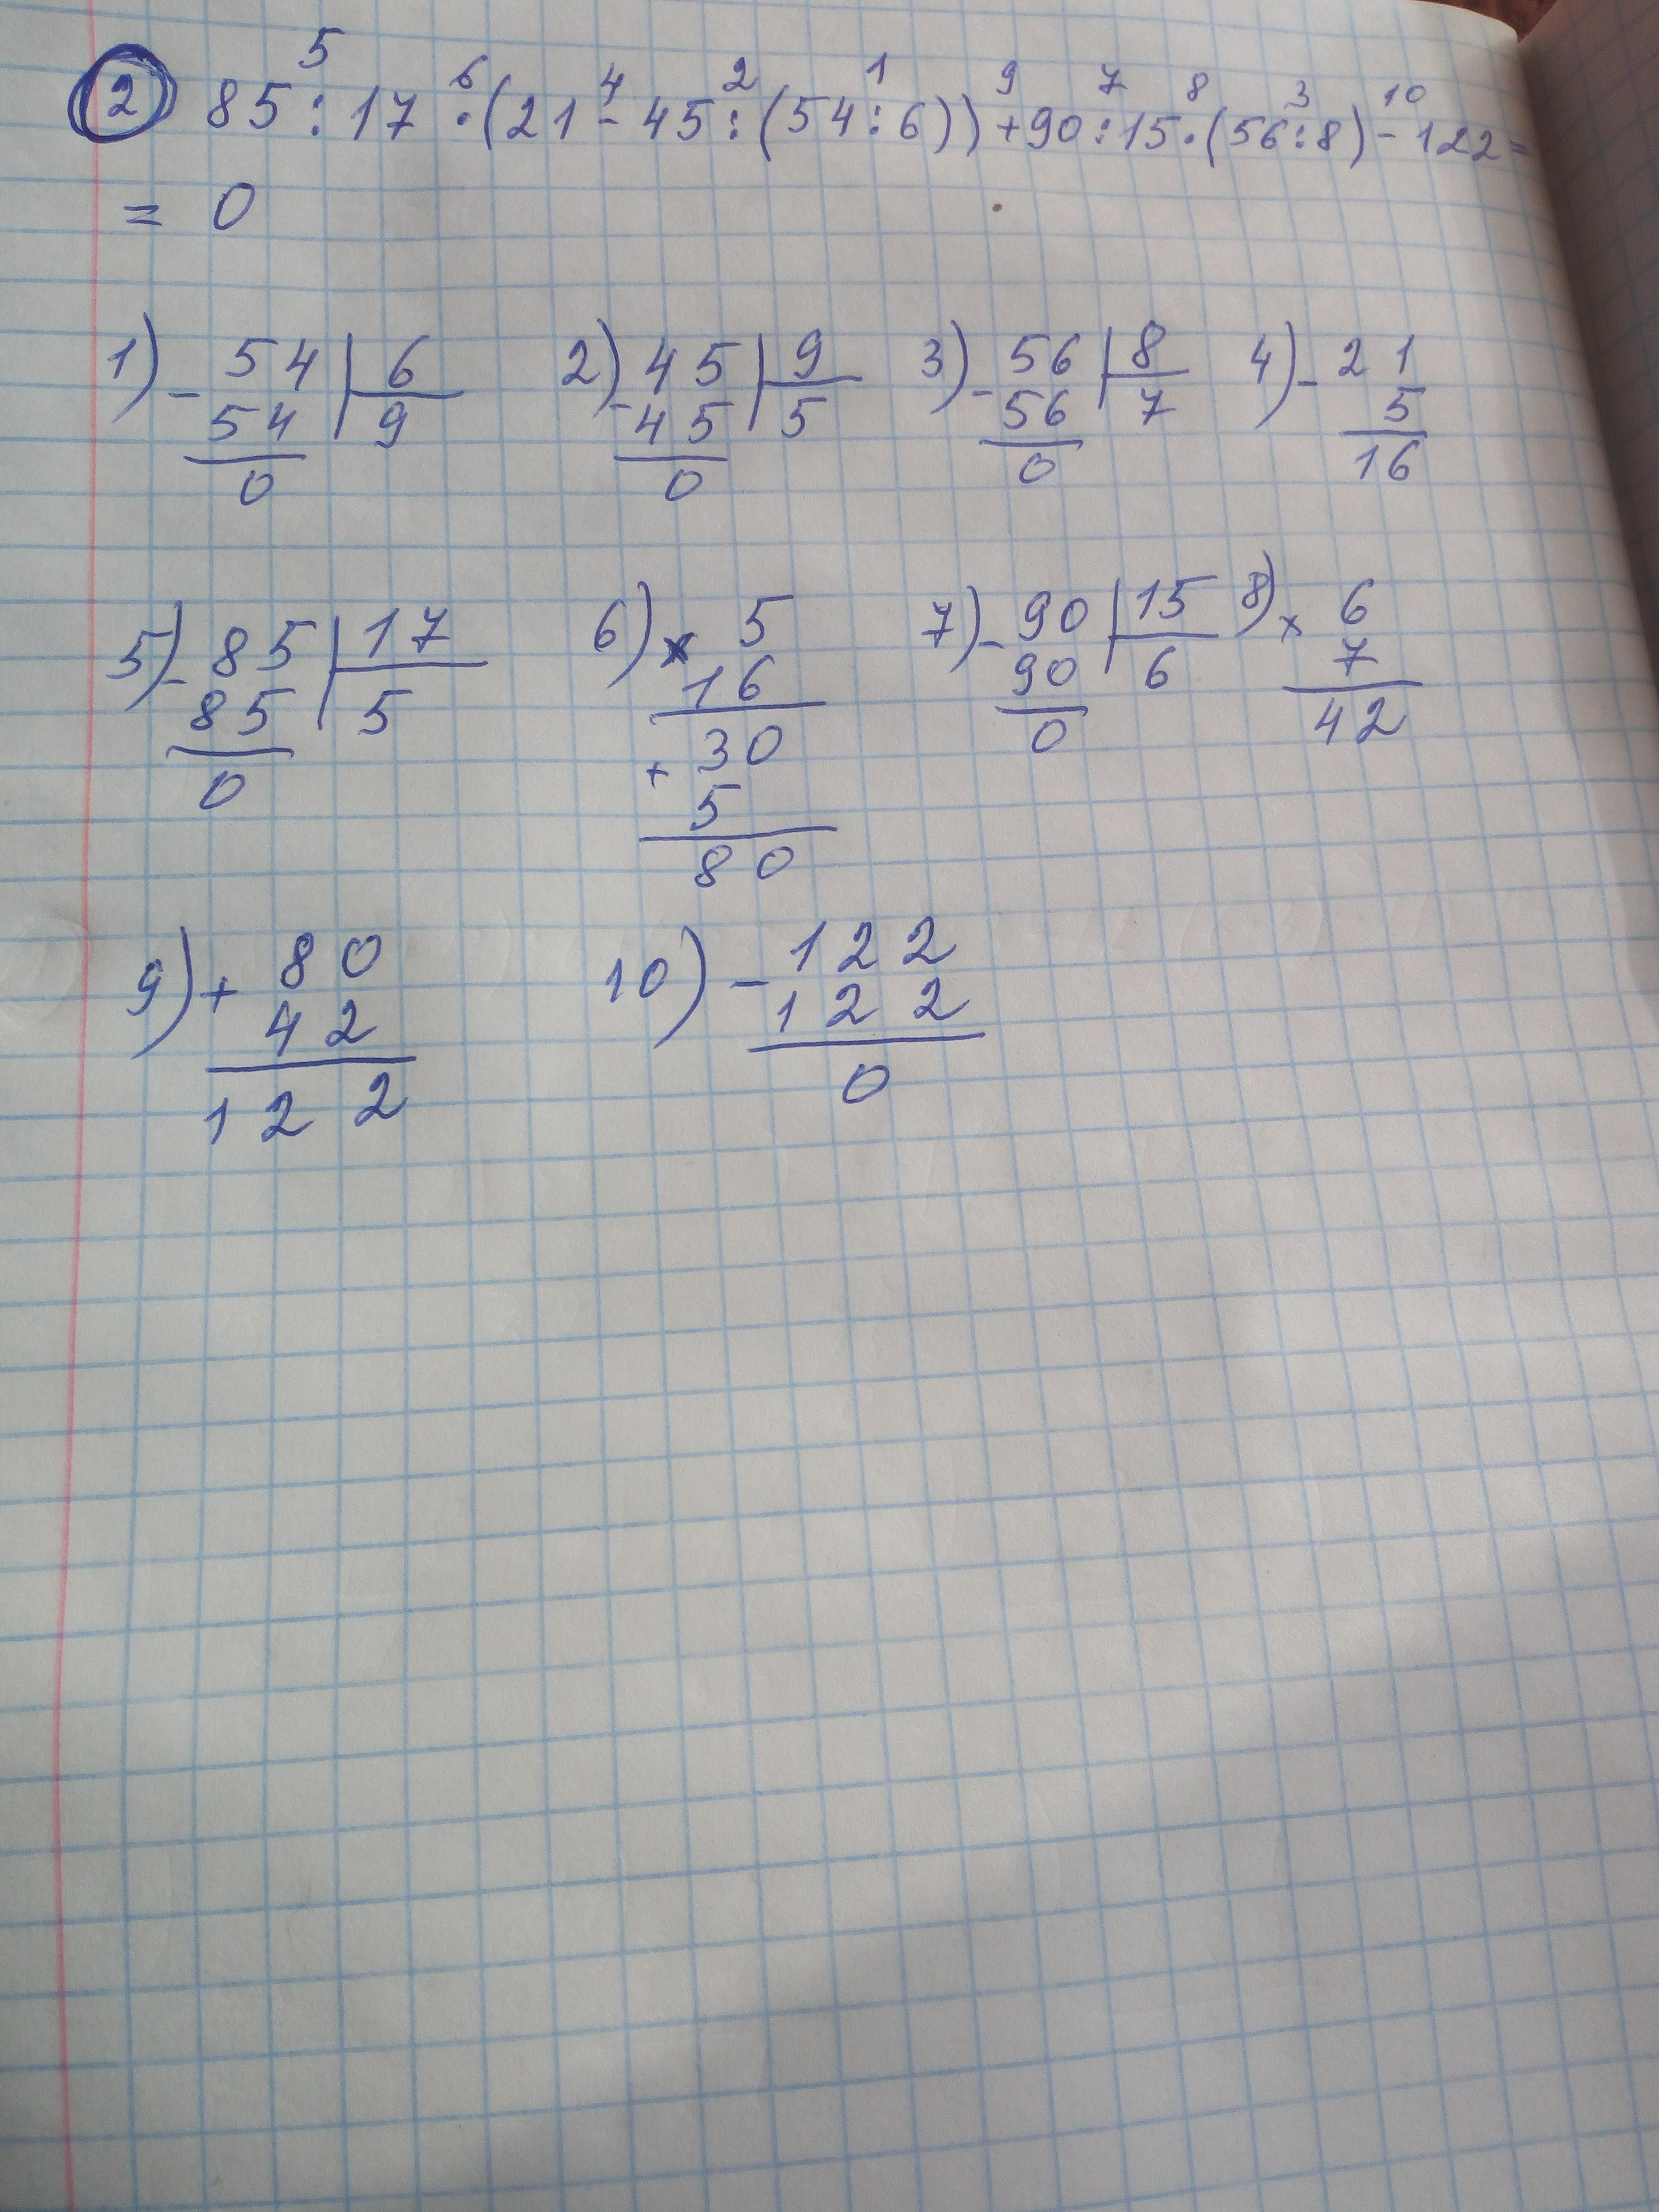 5 6 4 2 1 9 7 8 3 10
2 85 : 17 · (21 - 45 : (54 : 6)) + 90 : 15 · (56 : 8) - 122 =
= 0
1) - 54 | 6 2) - 45 | 9 3) - 56 | 8 4) - 21
54 | 9 45 | 5 56 | 7 5
0 0 0 16
5) - 85 | 17 6) x 5 7) - 90 | 15 8) x 6
85 | 5 16 90 | 6 7
0 + 30 0 42
5
80
9) + 80 10) - 122
42 122
122 0